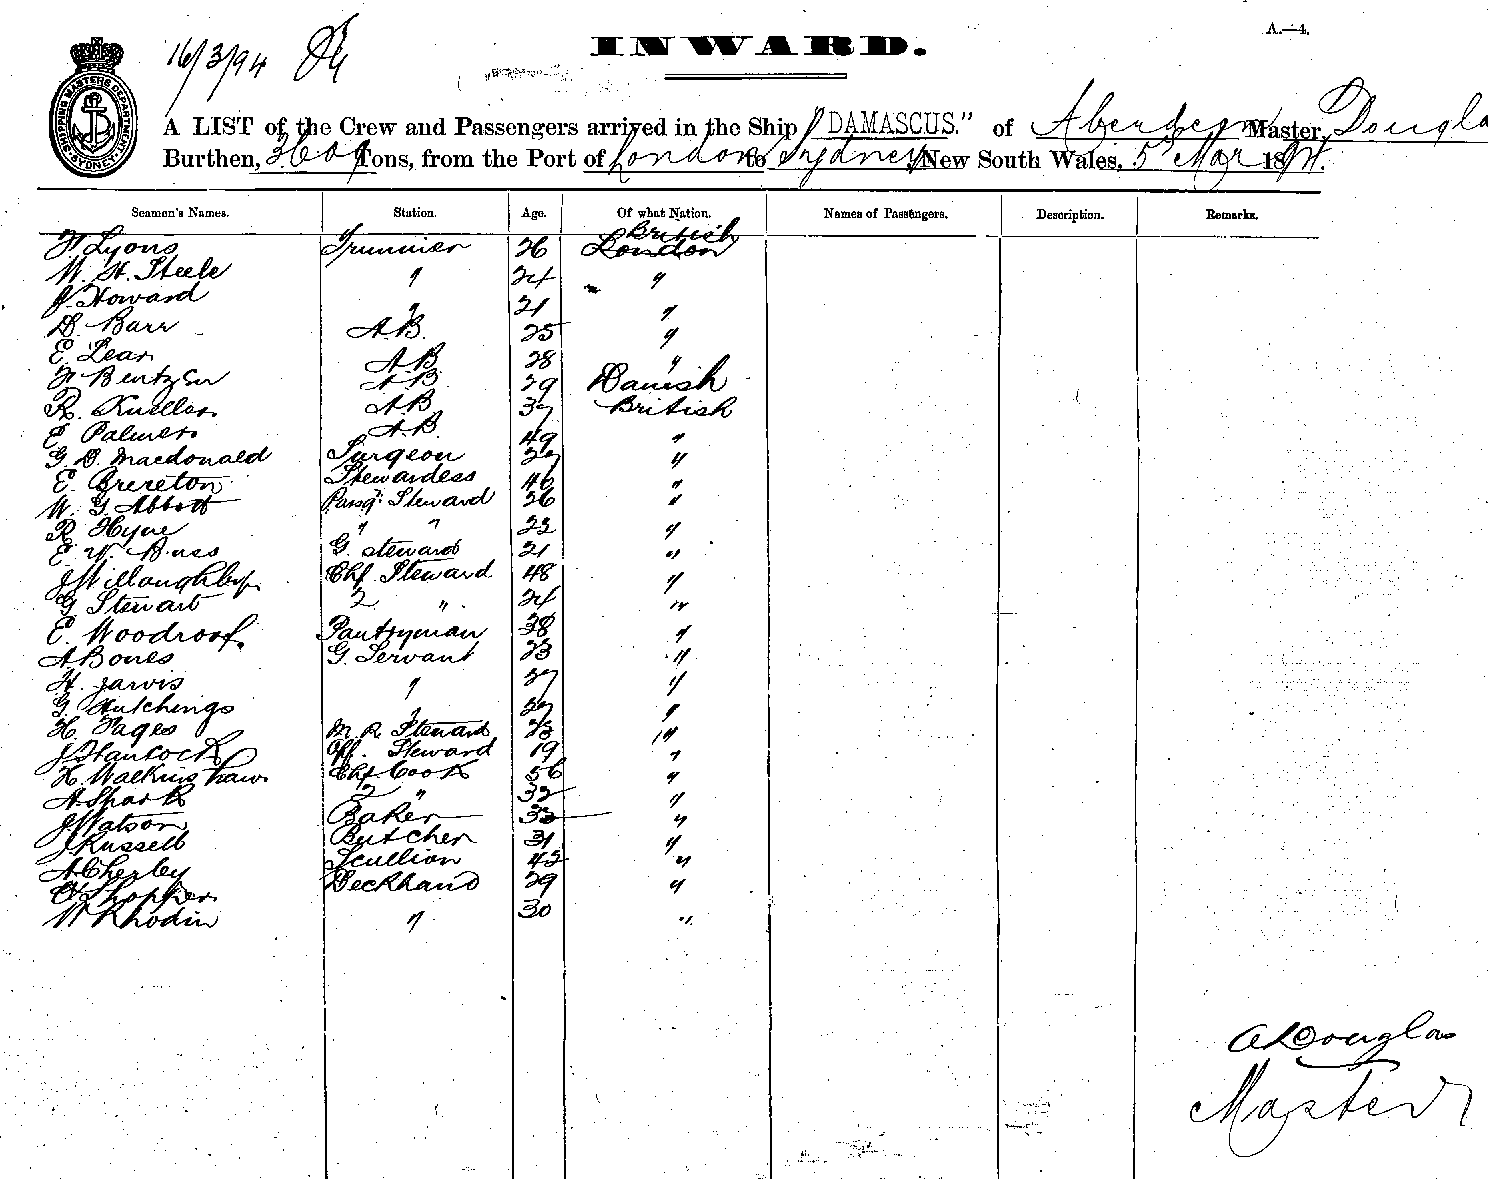 16/3/94
INWARD.
A.—4.
SHIPPING MASTERS DEPARTMENT SYDNEY
A LIST of the Crew and Passengers arrived in the Ship "DAMASCUS." of Aberdeen Master, Douglas
Burthen, 3609 Tons, from the Port of London to Sydney New South Wales, 5 Mar 1894.
Seamen's Names. Station. Age. Of what Nation. Names of Passengers. Description. Remarks.
British
F Lyons Trimmer 26 London
W. H. Steele " 24 "
J. Howard " 21 "
D. Barr A.B. 25 "
E. Lear A.B 28 "
F Bentzen A.B 29 Danish
R. Kneller A.B 37 British
E Palmer A.B 49 "
G. D. Macdonald Surgeon 27 "
E. Brereton Stewardess 46 "
W. G. Abbott Passgr Steward 26 "
R Hyne " " 23 "
E. W. Buss G. Steward 21 "
J Willoughby Chf. Steward 48 "
G Stewart 2 " 24 "
E. Woodroof Pantryman 38 "
A Bones G. Servant 23 "
H. Jarvis " 27 "
G. Hutchings " 27 "
H. Fages M. R. Steward 23 "
J Hancock Off. Steward 19 "
H. Walkinshaw Chf Cook 56 "
A Spark 2 " 32 "
J Watson Baker 33 "
J. Russell Butcher 31 "
A Cherley Scullion 42 "
Deckhand 29 "
W Rhodin " 30 "
A Douglas
Master